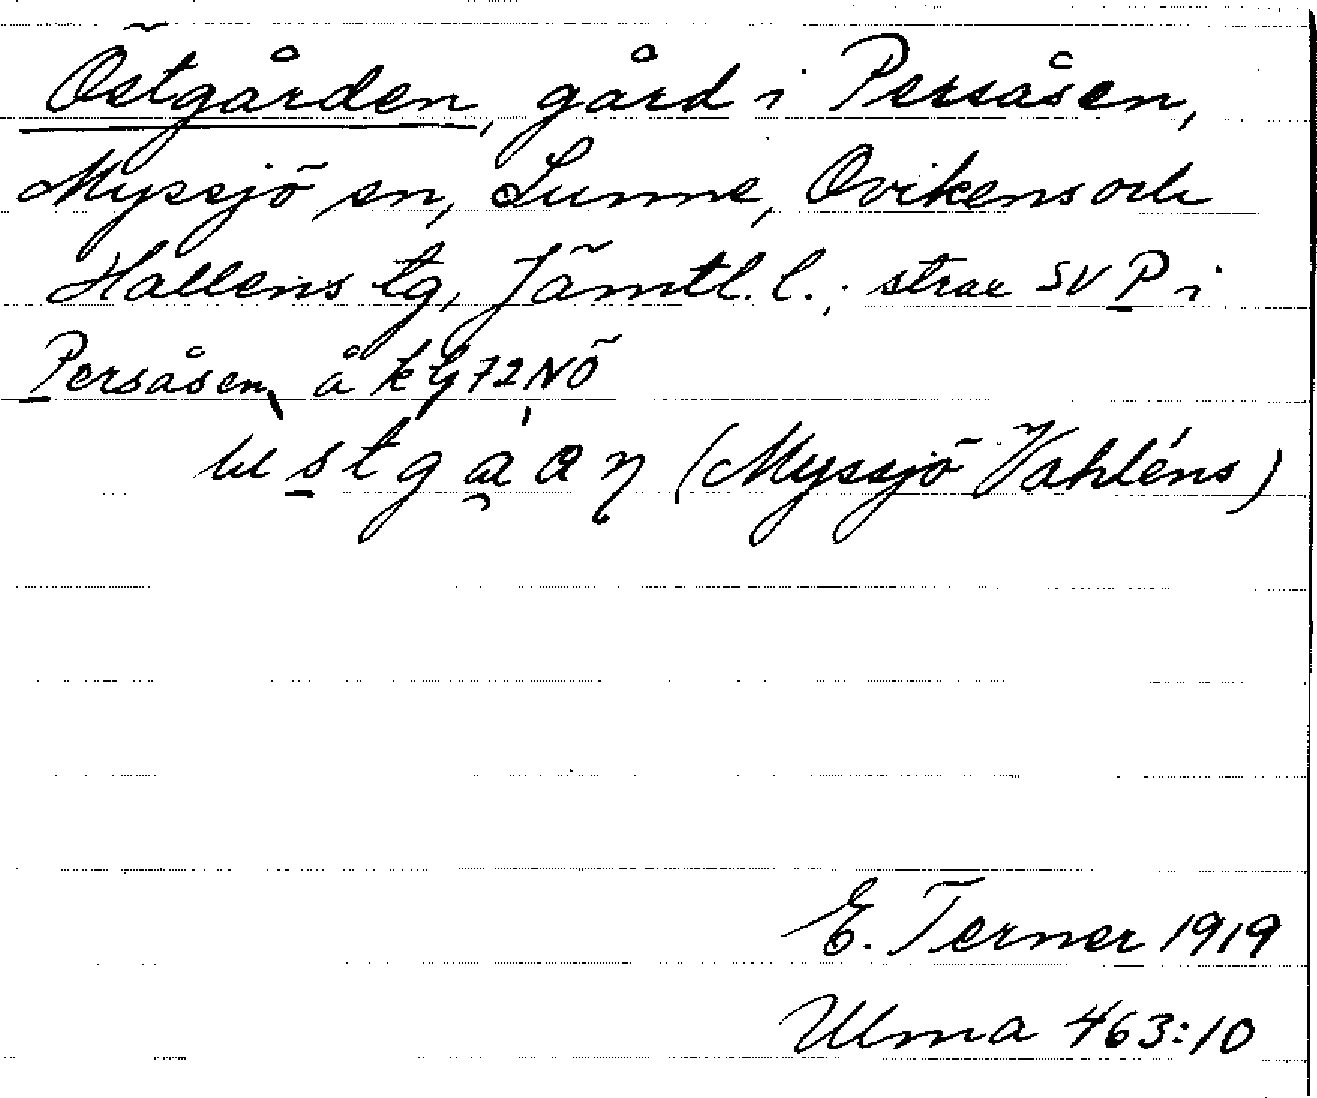 Östgården, gård i Persåsen,
Myssjö sn, Sunne, Ovikens och
Hallens tg, Jämtl. l.; strax SV P i
Persåsen å kbl 72 NÖ
(Myssjö Vahléns)
E. Terner 1919
Ulma 463:10